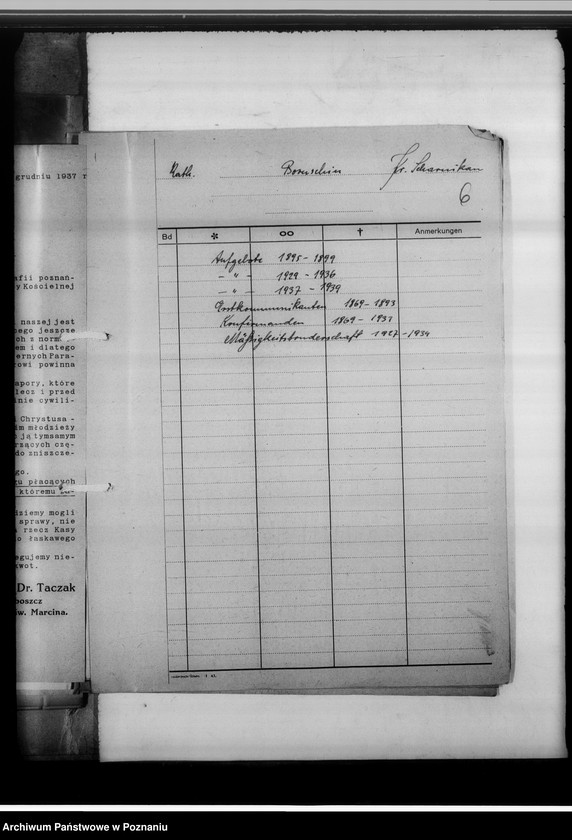 grudniu 1937 r
afii poznań-
y Kościelnej
naszej jest
ego jeszcze
ch z norm
em i dlatego
ernych Para-
rowi powinna
apory, które
lecz i przed
nie cywili-
Chrystusa -
im młodzieży
ją tymsamym
rzących czę-
do zniszcze-
go.
u płacących
któremu
ziemy mogli
sprawy, nie
rzecz Kasy
o łaskawego
egujemy nie-
kwot.
Dr. Taczak
boszcz
w. Marcina.
Kath. Boruschin Kr. Scharnikau
6
Bd * oo † Anmerkungen
Aufgebote 1895 - 1899
- " - 1929 - 1936
- " - 1937 - 1939
Erstkommunikanten 1869 - 1893
Konfirmanden 1869 - 1931
Mäßigkeitsbruderschaft 1927 - 1934
Archiwum Państwowe w Poznaniu